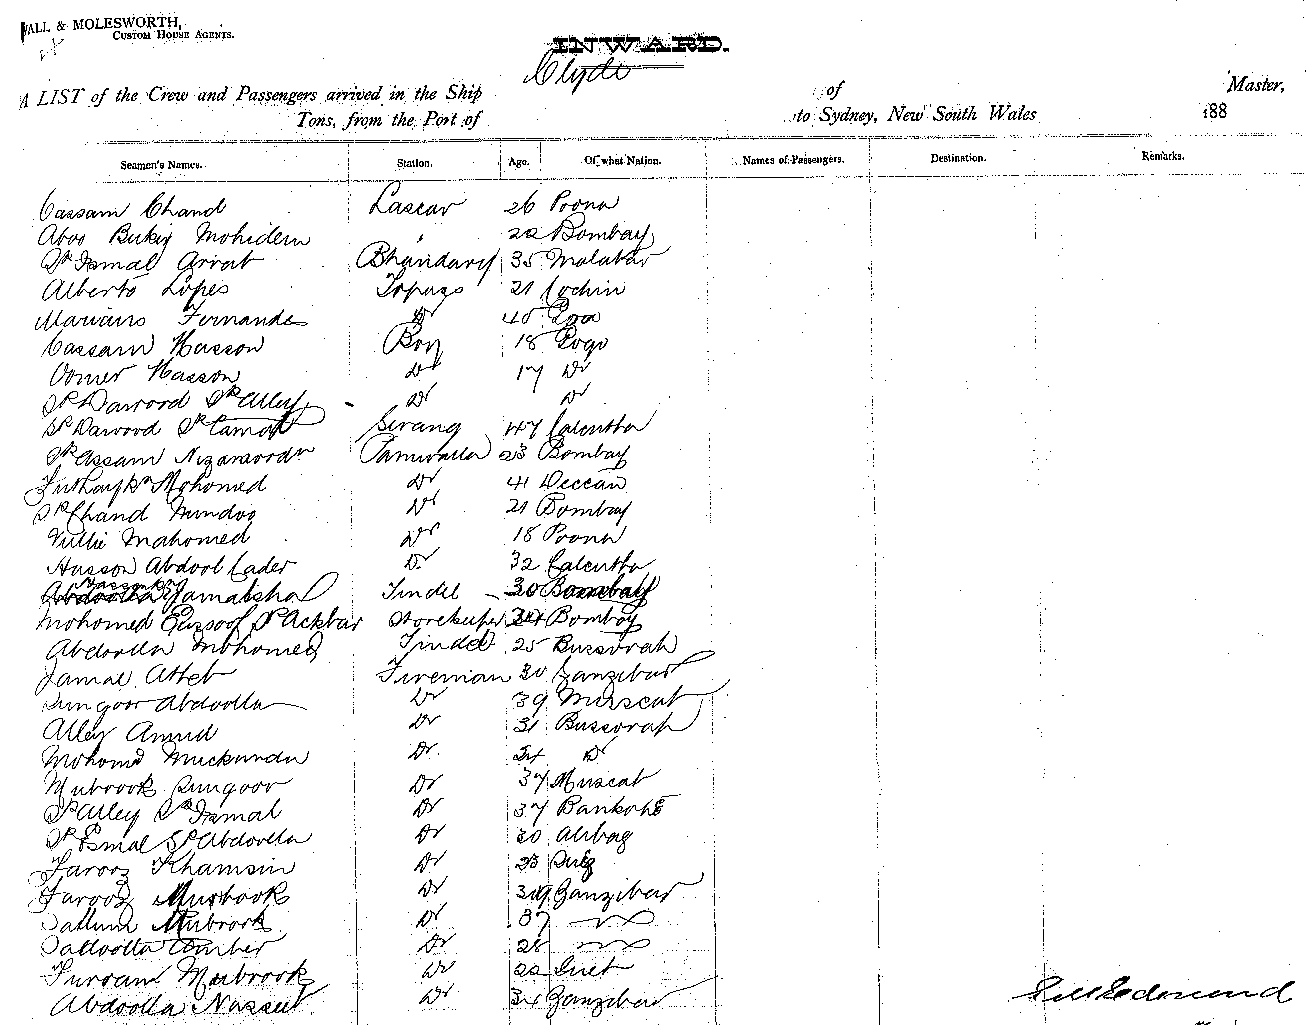 WALL & MOLESWORTH,
CUSTOM HOUSE AGENTS.
INWARD.
Clyde
A LIST of the Crew and Passengers arrived in the Ship of Master,
Tons, from the Port of to Sydney, New South Wales 188
Seamen's Names. Station. Age. Of what Nation. Names of Passengers. Destination. Remarks.
Cassam Chand Lascar 26 Poona
Aboo Mohideen 22 Bombay
Sk Ismal Bhandary 35 Malabar
Alberto Lopes Topass 21 Cochin
Mariano Fernandes Do 40 Goa
Cassam Hasson Boy 18 Gogo
Oomer Hasson Do 17 Do
Sk Dawood Sk Alley Do Do
Sk Dawood Sk Camal Serang 47 Calcutta
Sk Assam Paniwalla 23 Bombay
Mohomed Do 41 Deccan
Sk Chand Do 21 Bombay
Mahomed Do 18 Poona
Husson Abdool Cader Do 32 Calcutta
Jamalsha Tindel 30 Bombay
Mohomed Eusoof Sk Ackbar Storekeeper Bombay
Abdoolla Mohomed Tindel 25 Bussorah
Jamal Fireman 30 Zanzibar
Sungoor Abdoolla Do 39 Muscat
Alley Do 31 Bussorah
Mohomed Do 34 Do
Mubrook Sungoor Do 37 Muscat
Sk Alley Sk Ismal Do 37
Sk Esmal Sk Abdoolla Do 30 Alibag
Farooz Khamsin Do 23
Farooz Murbook Do Zanzibar
Mubrook Do 37
Do 28
Mubrook Do 22
Abdoolla Do 34 Zanzibar